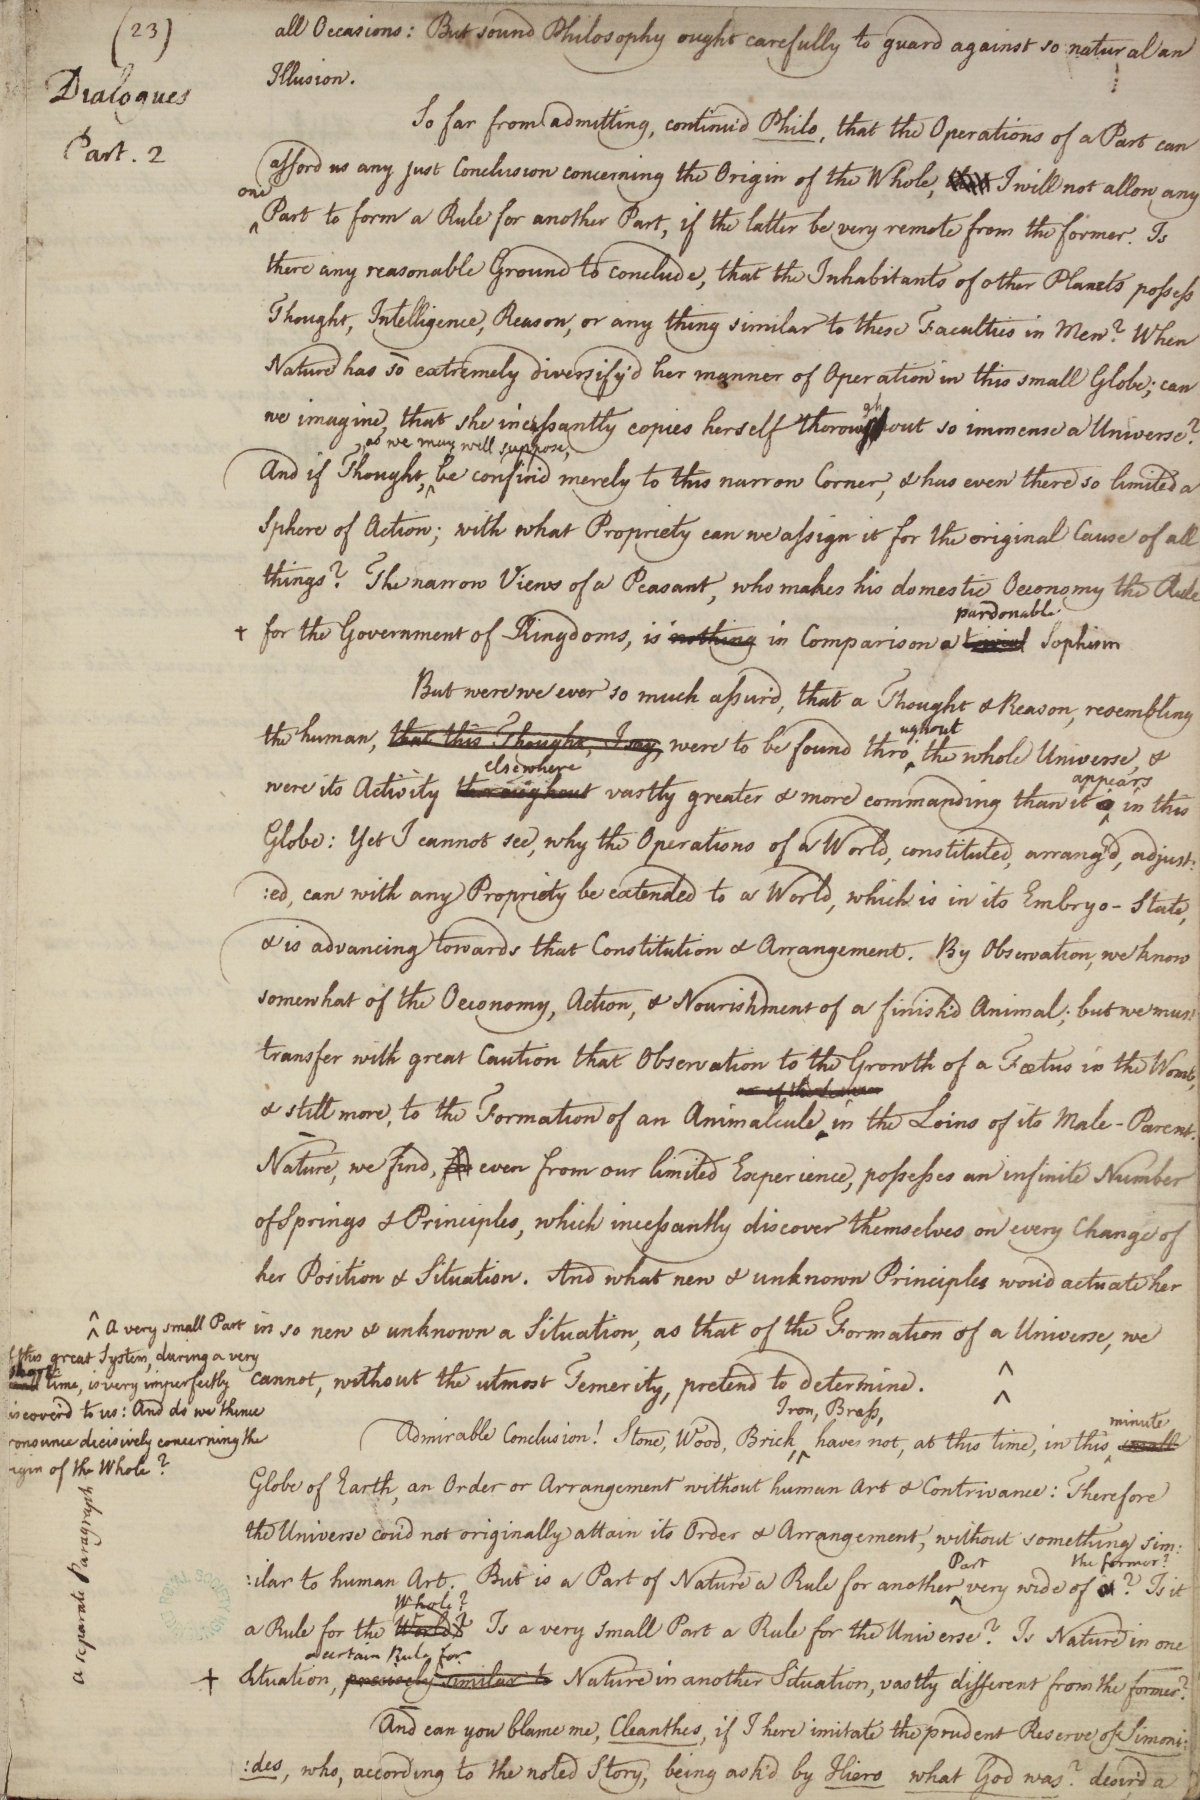 (23)
Dialogues
Part. 2
all Occasions: But sound Philosophy ought carefully to guard against so natural an
Illusion.
So far from admitting, continu'd Philo, that the Operations of a Part can
afford us any just Conclusion concerning the Origin of the Whole, I will not allow any
one
^ Part to form a Rule for another Part, if the latter be very remote from the former. Is
there any reasonable Ground to conclude, that the Inhabitants of other Planets possess
Thought, Intelligence, Reason, or any thing similar to these Faculties in Men? When
Nature has so extremely diversify'd her manner of Operation in this small Globe; can
we imagine, that she incessantly copies herself thoroughout so immense a Universe?
, as we may well suppose,
And if Thought, ^ be confin'd merely to this narrow Corner, & has even there so limited a
Sphere of Action; with what Propriety can we assign it for the original Cause of all
things? The narrow Views of a Peasant, who makes his domestic Oeconomy the Rule
pardonable
+ for the Government of Kingdoms, is nothing in Comparison a trivial Sophism
But were we ever so much assur'd, that a Thought & Reason, resembling
ughout
the human, that this Thought, I say, were to be found thro ^ the whole Universe, &
elsewhere appears
were its Activity throughout vastly greater & more commanding than it ^ in this
Globe: Yet I cannot see, why the Operations of a World, constituted, arrang'd, adjust:
:ed, can with any Propriety be extended to a World, which is in its Embryo-State,
& is advancing towards that Constitution & Arrangement. By Observation, we know
somewhat of the Oeconomy, Action, & Nourishment of a finish'd Animal; but we must
transfer with great Caution that Observation to the Growth of a Fœtus in the Womb,
& still more, to the Formation of an Animalcule ^ in the Loins of its Male-Parent.
Nature, we find, even from our limited Experience, possesses an infinite Number
of Springs & Principles, which incessantly discover themselves on every Change of
her Position & Situation. And what new & unknown Principles wou'd actuate her
in so new & unknown a Situation, as that of the Formation of a Universe, we
cannot, without the utmost Temerity, pretend to determine. ^
^ A very small Part
of this great System, during a very
short time, is very imperfectly
iscover'd to us: And do we thence
ronounce decisively concerning the
igin of the Whole?
a separate Paragraph
Iron, Brass, minute
Admirable Conclusion! Stone, Wood, Brick, ^ have not, at this time, in this ^ small
Globe of Earth, an Order or Arrangement without human Art & Contrivance: Therefore
the Universe cou'd not originally attain its Order & Arrangement, without something sim:
Part the former?
:ilar to human Art. But is a Part of Nature a Rule for another ^ very wide of it? Is it
Whole?
a Rule for the World? Is a very small Part a Rule for the Universe? Is Nature in one
a certain Rule for
+ Situation, precisely similar to Nature in another Situation, vastly different from the former?
And can you blame me, Cleanthes, if I here imitate the prudent Reserve of Simoni:
:des, who, according to the noted Story, being ask'd by Hiero what God was? desir'd a